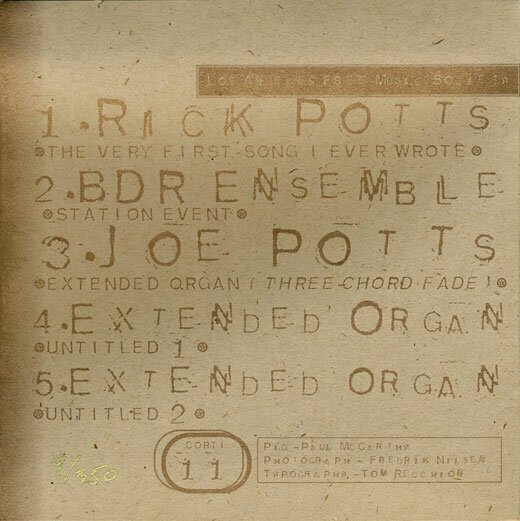 LOS ANGELES FREE MUSIC SOCIETY
1. RICK POTTS
THE VERY FIRST SONG I EVER WROTE
2. BDR ENSEMBLE
STATION EVENT
3. JOE POTTS
EXTENDED ORGAN (THREE-CHORD FADE)
4. EXTENDED ORGAN
UNTITLED 1
5. EXTENDED ORGAN
UNTITLED 2
CORTI
11
PIG - PAUL MCCARTHY
PHOTOGRAPH - FREDRIK NILSEN
TAPOGRAPHY - TOM RECCHION
/350